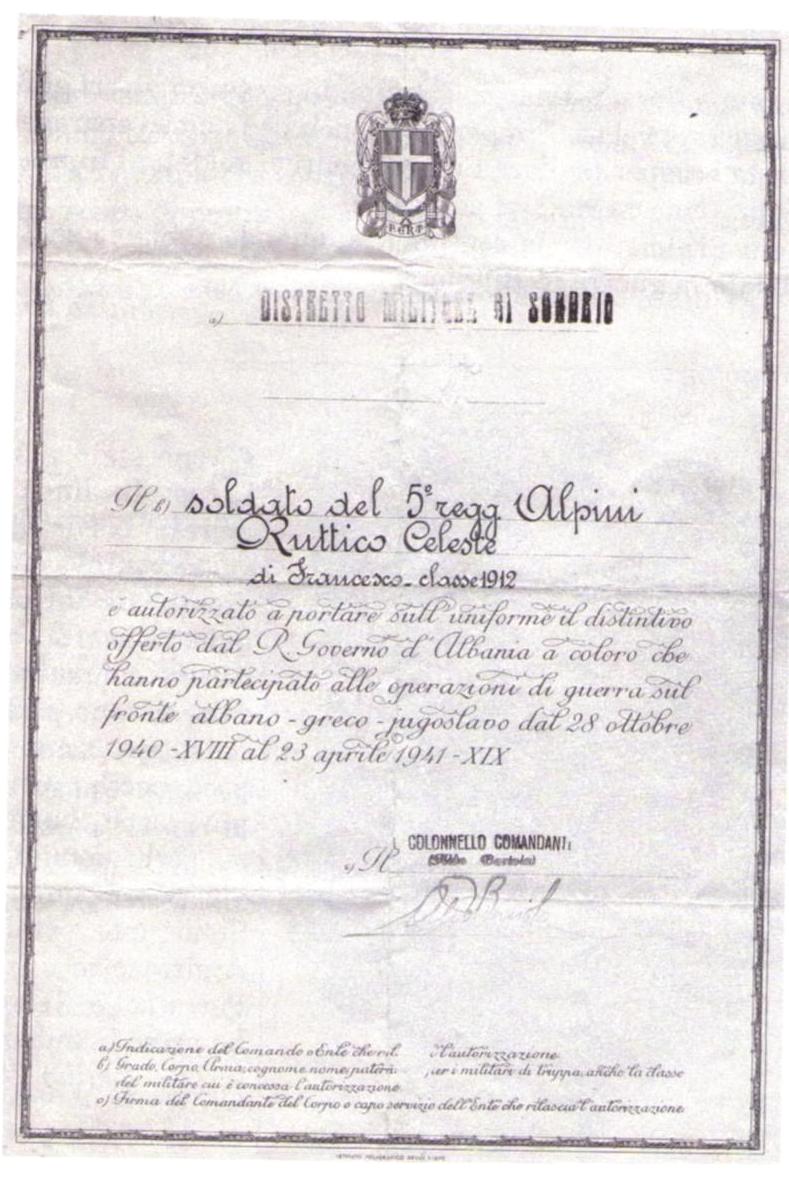 FERT
a) DISTRETTO MILITARE DI SONDRIO
Il b) soldato del 5° regg Alpini
Ruttico Celeste
di Francesco - classe 1912
è autorizzato a portare sull'uniforme il distintivo
offerto dal R. Governo d'Albania a coloro che
hanno partecipato alle operazioni di guerra sul
fronte albano-greco-jugoslavo dal 28 ottobre
1940-XVIII al 23 aprile 1941-XIX
COLONNELLO COMANDANTE
c) Il
a) Indicazione del Comando o Ente che ril. l'autorizzazione.
b) Grado, Corpo, Arma, cognome, nome, paterà. per i militari di truppa, anche la classe
del militare cui è concessa l'autorizzazione.
c) Firma del Comandante del Corpo o capo servizio dell'Ente che rilascia l'autorizzazione